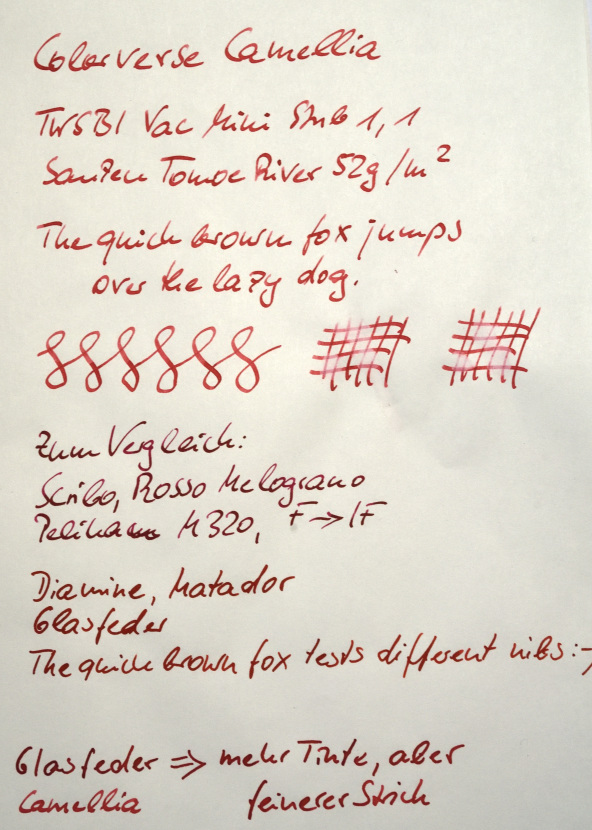 Colorverse Camellia
TWSBI Vac Mini Stub 1,1
SanZen Tomoe River 52g/m²
The quick brown fox jumps
over the lazy dog.
Zum Vergleich:
Scribo, Rosso Melograno
Pelikan M320, F → IF
Diamine, Matador
Glasfeder
The quick brown fox tests different nibs :-)
Glasfeder => mehr Tinte, aber
Camellia feinerer Strich